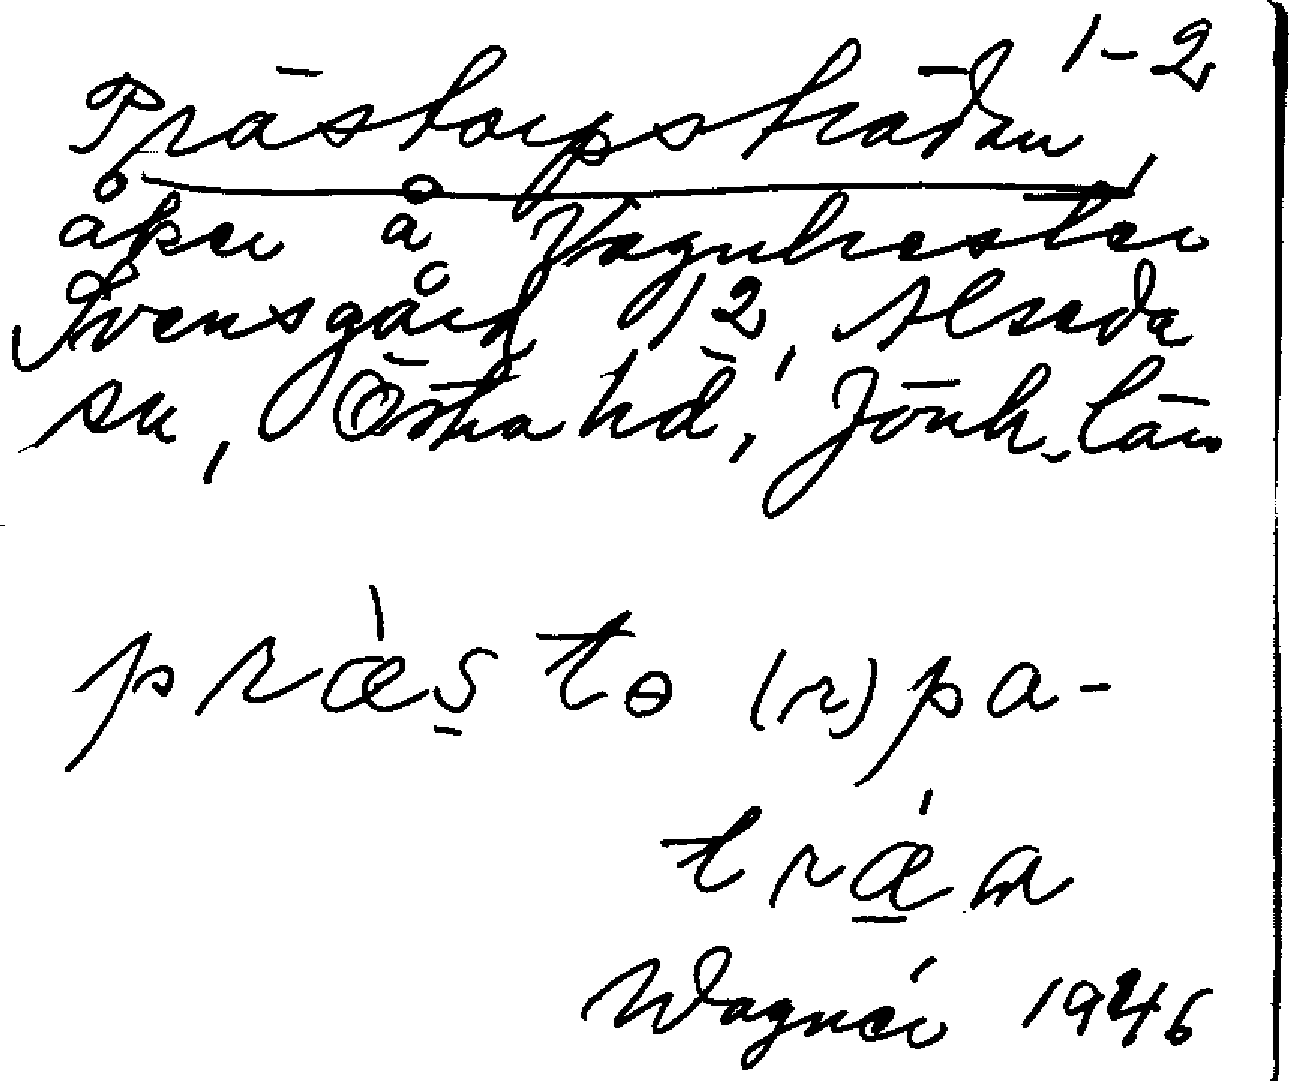 1-2
Prästorpsträdan,
åker å Vagnhester
Svensgård 1/2, Alseda
sn, Östra hd, Jönk. län
præ̀sto(r)pa-
trǽn
Wagnér 1946